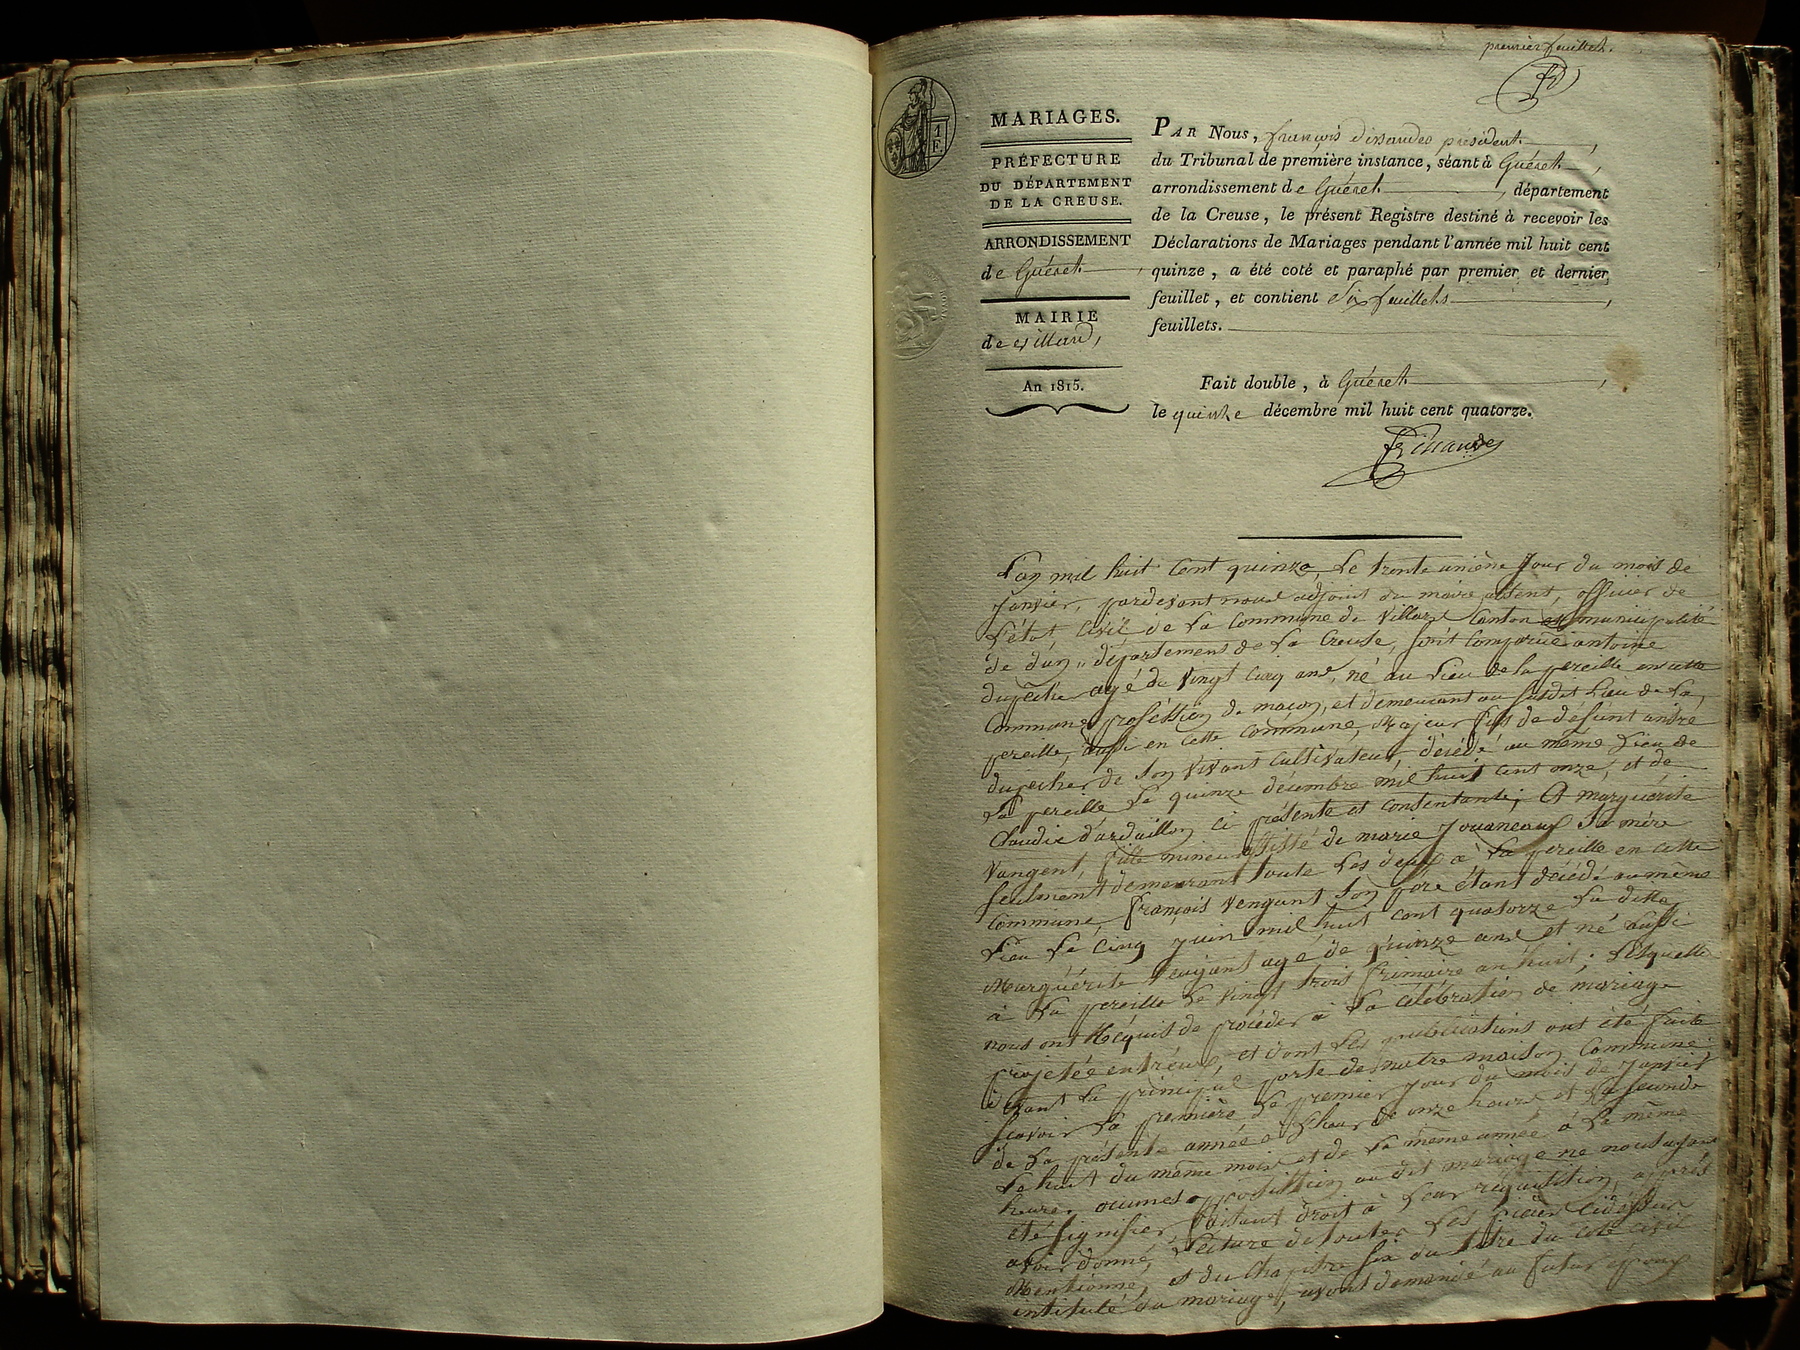 premier feuillet.
1
F.
MARIAGES.
PRÉFECTURE
DU DÉPARTEMENT
DE LA CREUSE.
ARRONDISSEMENT
de Guéret
MAIRIE
de villard,
An 1815.
PAR Nous, françois dissandes président
du Tribunal de première instance, séant à Guéret,
arrondissement de Guéret, département
de la Creuse, le présent Registre destiné à recevoir les
Déclarations de Mariages pendant l'année mil huit cent
quinze, a été coté et paraphé par premier et dernier
feuillet, et contient Six feuillets,
feuillets.
Fait double, à Guéret,
le quinze décembre mil huit cent quatorze.
L'an mil huit Cent quinze, Le trente unième Jour du mois de
Janvier, pardevant nous adjoint du maire absent, officier de
L'état Civil de La Commune de Villard Canton et municipalité
de dun, département de La Creuse, sont comparus antoine
dupêcher agé de Vingt Cinq ans, né au Lieu de la pereille en cette
Commune, proféssion de maçon, et demeurant au susdit Lieu de La
pereille, aussi en cette commune, Majeur fils de défunt andré
dupecher de Son Vivant Cultivateur, décédé au même Lieu de
La pereille Le quinze décembre mil huit cent onze, et de
Claudie dardaillon ci présente et consentante; Et marguérite
Vangent, fille mineur assisté de marie Jouaneaux Sa mère
seulment demeurant toute Les deux à La pereille en cette
Commune, françois Vengant Son père étant décédé au même
Lieu Le Cinq juin mil huit cent quatorze La ditte
Marguérite agé de quinze ans et né aussi
à La pereille Le vingt trois frimaire an huit; Lésquelle
nous ont Réquis de procéder à La célébration de mariage
projetée entréux, et dont Les publications ont été faite
devant La principal porte de nôtre maison Commune
Scavoir La première Le premier Jour du mois de Janvier
de La présente année a L'heur de onze heures et La seconde
Le huit du même mois et de La même année à La même
heure, aucunes oposition au dit mariage ne nous ayant
eté Signifier, faisant droit à Leur réquisition, après
avoir donné Lecture de toutes Les pièces cidéssus
Mentionné, et du Chapitre Six du titre du Code Civil
intitulé du mariage, avons demandé au futur époux